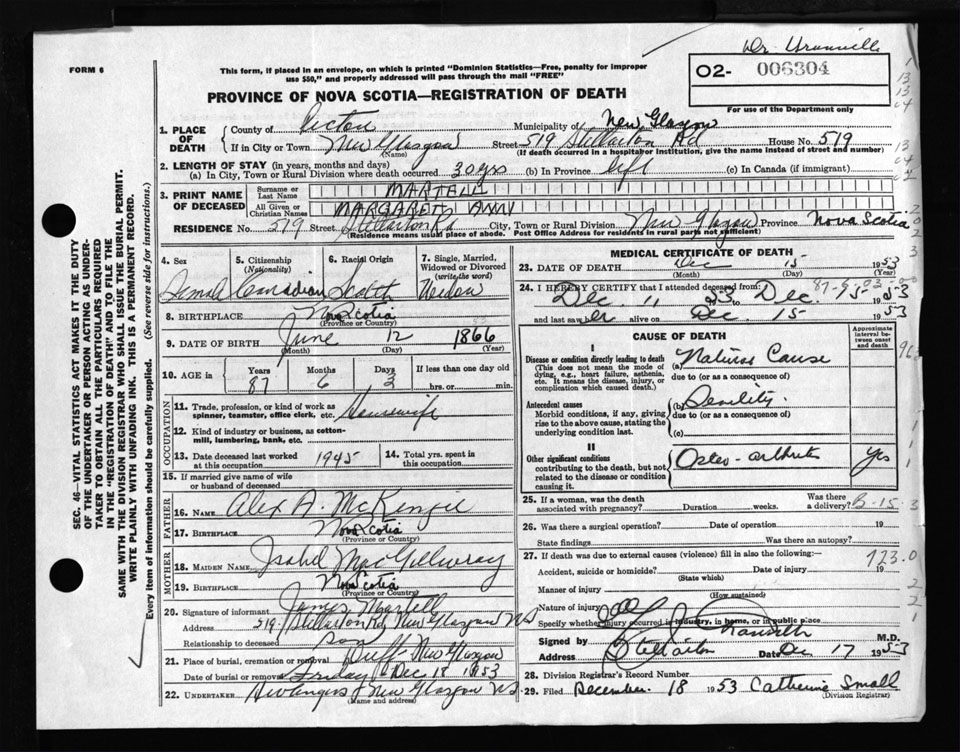 Dr. Granville
FORM 6
This form, if placed in an envelope, on which is printed "Dominion Statistics—Free, penalty for improper
use $50," and properly addressed will pass through the mail "FREE"
02- 006304
For use of the Department only
PROVINCE OF NOVA SCOTIA—REGISTRATION OF DEATH
1. PLACE OF DEATH County of Pictou Municipality of New Glasgow
If in City or Town New Glasgow (Name) Street 519 Stellarton Rd House No. 519
(If death occurred in a hospital or institution, give the name instead of street and number)
2. LENGTH OF STAY (in years, months and days)
(a) In City, Town or Rural Division where death occurred 30 yrs (b) In Province life (c) In Canada (if immigrant)
3. PRINT NAME OF DECEASED Surname or Last Name MARTELL
All Given or Christian Names MARGARET ANN
RESIDENCE No. 519 Street Stellarton Rd City, Town or Rural Division New Glasgow Province Nova Scotia
(Residence means usual place of abode. Post Office Address for residents in rural parts not sufficient)
SEC. 46—VITAL STATISTICS ACT MAKES IT THE DUTY
OF THE UNDERTAKER OR PERSON ACTING AS UNDER-
TAKER TO OBTAIN ALL THE PARTICULARS REQUIRED
IN THE "REGISTRATION OF DEATH" AND TO FILE THE
SAME WITH THE DIVISION REGISTRAR WHO SHALL ISSUE THE BURIAL PERMIT.
WRITE PLAINLY WITH UNFADING INK. THIS IS A PERMANENT RECORD.
Every item of information should be carefully supplied. (See reverse side for instructions.)
4. Sex 5. Citizenship (Nationality) 6. Racial Origin 7. Single, Married, Widowed or Divorced (write the word)
Female Canadian Scotch Widow
8. BIRTHPLACE Nova Scotia
(Province or Country)
9. DATE OF BIRTH June 12 1866
(Month) (Day) (Year)
10. AGE in Years Months Days If less than one day
87 6 3 hrs. or min.
OCCUPATION
11. Trade, profession, or kind of work as spinner, teamster, office clerk, etc. Housewife
12. Kind of industry or business, as cotton-mill, lumbering, bank, etc.
13. Date deceased last worked at this occupation 1945 14. Total yrs. spent in this occupation
15. If married give name of wife or husband of deceased
FATHER
16. NAME Alex A. McKenzie
17. BIRTHPLACE Nova Scotia
(Province or Country)
MOTHER
18. MAIDEN NAME Isabel MacGillivray
19. BIRTHPLACE Nova Scotia
(Province or Country)
20. Signature of informant James Martell
Address 519 Stellarton Rd, New Glasgow NS
Relationship to deceased son
21. Place of burial, cremation or removal Duff New Glasgow
Date of burial or removal Friday Dec 18 1953
22. UNDERTAKER New Glasgow N.S.
(Name and address)
MEDICAL CERTIFICATE OF DEATH
23. DATE OF DEATH Dec 15 1953
(Month) (Day) (Year)
24. I HEREBY CERTIFY that I attended deceased from:
Dec. 11 1953 Dec. 15 1953
and last saw her alive on Dec. 15 1953
CAUSE OF DEATH
Approximate interval between onset and death
I
Disease or condition directly leading to death
(This does not mean the mode of dying, e.g., heart failure, asthenia, etc. It means the disease, injury, or complication which caused death.)
(a) Natural Cause
due to (or as a consequence of)
Antecedent causes
Morbid conditions, if any, giving rise to the above cause, stating the underlying condition last.
(b) Senility
due to (or as a consequence of)
(c)
II
Other significant conditions
contributing to the death, but not related to the disease or condition causing it.
Osteo-arthritis Yes
25. If a woman, was the death associated with pregnancy? Duration weeks. Was there a delivery?
26. Was there a surgical operation? Date of operation 19
State findings Was there an autopsy?
27. If death was due to external causes (violence) fill in also the following:—
Accident, suicide or homicide? (State which) Date of injury 19
Manner of injury (How sustained)
Nature of injury
Specify whether injury occurred in industry, in home, or in public place
Signed by M.D.
Address Stellarton Date Dec 17 1953
28. Division Registrar's Record Number
29. Filed December 18 1953 Catherine Small
(Division Registrar)